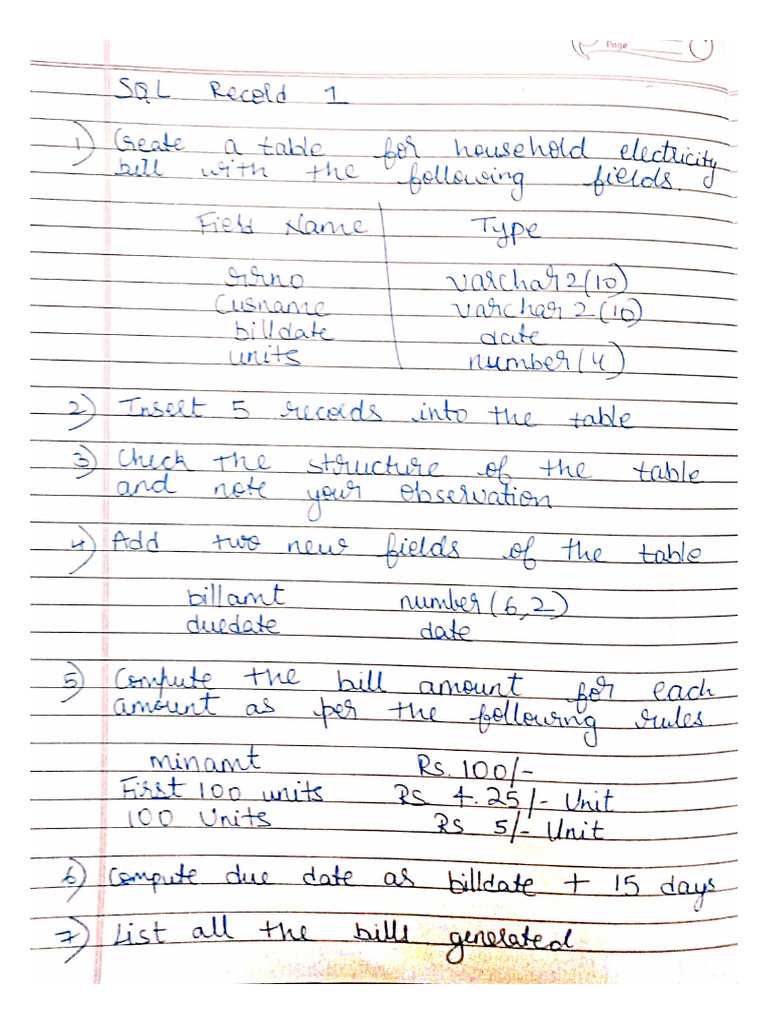 Page
SQL Record 1
1) Create a table for household electricity
bill with the following fields.
Field Name Type
rrno varchar2(10)
Cusname varchar2(10)
billdate date
units number(4)
2) Insert 5 records into the table
3) Check the structure of the table
and note your observation
4) Add two new fields of the table
billamt number(6,2)
duedate date
5) Compute the bill amount for each
amount as per the following rules
minamt Rs. 100/-
First 100 units RS 4.25/- Unit
100 Units RS 5/- Unit
6) Compute due date as billdate + 15 days
7) List all the bills generated